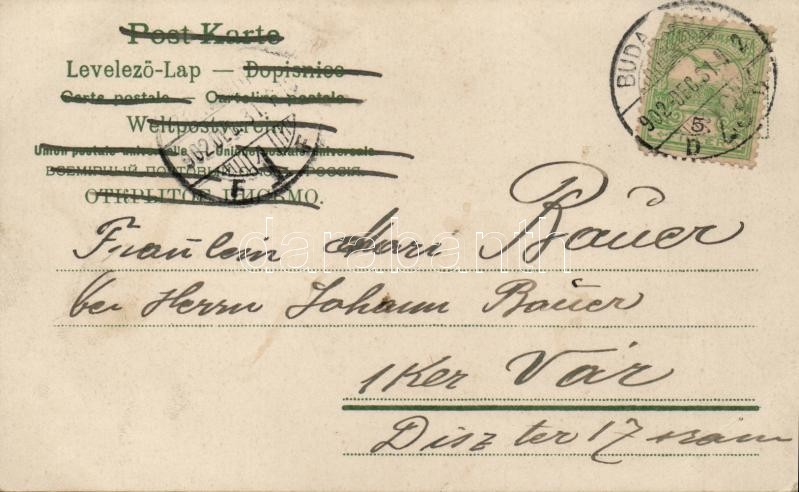 Post Karte
Levelező-Lap — Dopisnice
Carte postale — Cartolina postale
Weltpostverein
Union postale universelle — Unione postale universale
ВСЕМІРНЫЙ ПОЧТОВЫЙ РОССІЯ.
ОТКРЫТОЕ ПИСЬМО.
BUDA
902 DEC. 31
5
D
902 DEC. 31
Fräulein Mari Bauer
bei Herrn Johann Bauer
1 Ker Vár
Disz ter 17 szám
darabanth